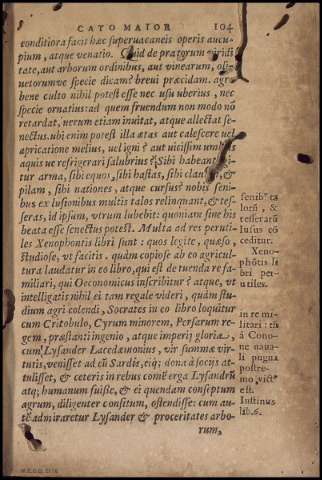 CATO MAIOR 104
conditiora facit hæc superuacaneis operis aucu-
pium, atque venatio. Quid de pratorum viridi
tate, aut arborum ordinibus, aut vinearum, oli-
uetorumve specie dicam? breui præcidam. agro
bene culto nihil potest esse nec usu uberius, nec
specie ornatius: ad quem fruendum non modo nō
retardat, verum etiam inuitat, atque allectat se-
nectus. ubi enim potest illa ætas aut calescere uel
apricatione melius, uel igni? aut uicissim umbris
aquis ue refrigerari salubrius? Sibi habeant igi-
tur arma, sibi equos, sibi hastas, sibi clauam, &
pilam, sibi natationes, atque cursus? nobis seni-
bus ex lusionibus multis talos relinquant, & tes-
seras, id ipsum, utrum lubebit: quoniam sine his
beata esse senectus potest. Multa ad res perutiles
Xenophontis libri sunt: quos legite, quæso,
studiose, ut facitis. quàm copiose ab eo agricul-
tura laudatur in eo libro, qui est de tuenda re fa-
miliari, qui Oeconomicus inscribitur? atque, ut
intelligatis nihil ei tam regale videri, quàm stu-
dium agri colendi, Socrates in eo libro loquitur
cum Critobulo, Cyrum minorem, Persarum re-
gem, præstanti ingenio, atque imperij gloria,
cum Lysander Lacedæmonius, vir summæ vir-
tutis, venisset ad eū Sardis, eiq; dona à socijs at-
tulisset, & ceteris in rebus comē erga Lysandrū
atq; humanum fuisse, & ei quendam conseptum
agrum, diligenter consitum, ostendisse: cum au-
tē admiraretur Lysander & proceritates arbo-
rum,
senib° ta
lorū, &
tesserarū
lusus cō
ceditur.
Xeno-
phōtis li
bri per-
utiles.
in re mi
litari: is
à Cono-
ne naua-
li pugna
postre-
mo vict°
est.
Iustinus
lib. 6.